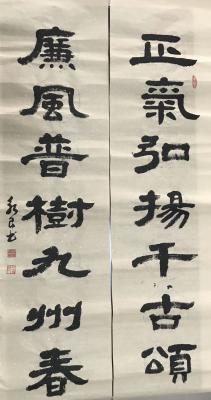 正氣弘揚千古頌
廉風普樹九州春